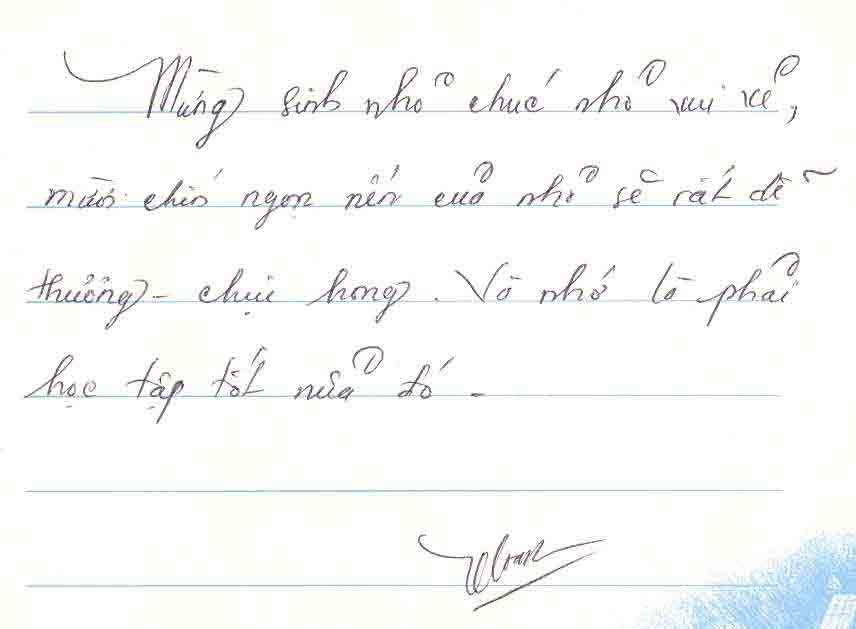 Mừng sinh nhỏ chúc nhỏ vui vẻ,
mười chín ngọn nến của nhỏ sẽ rất dễ
thương - chịu hong. Và nhớ là phải
học tập tốt nữa đó -